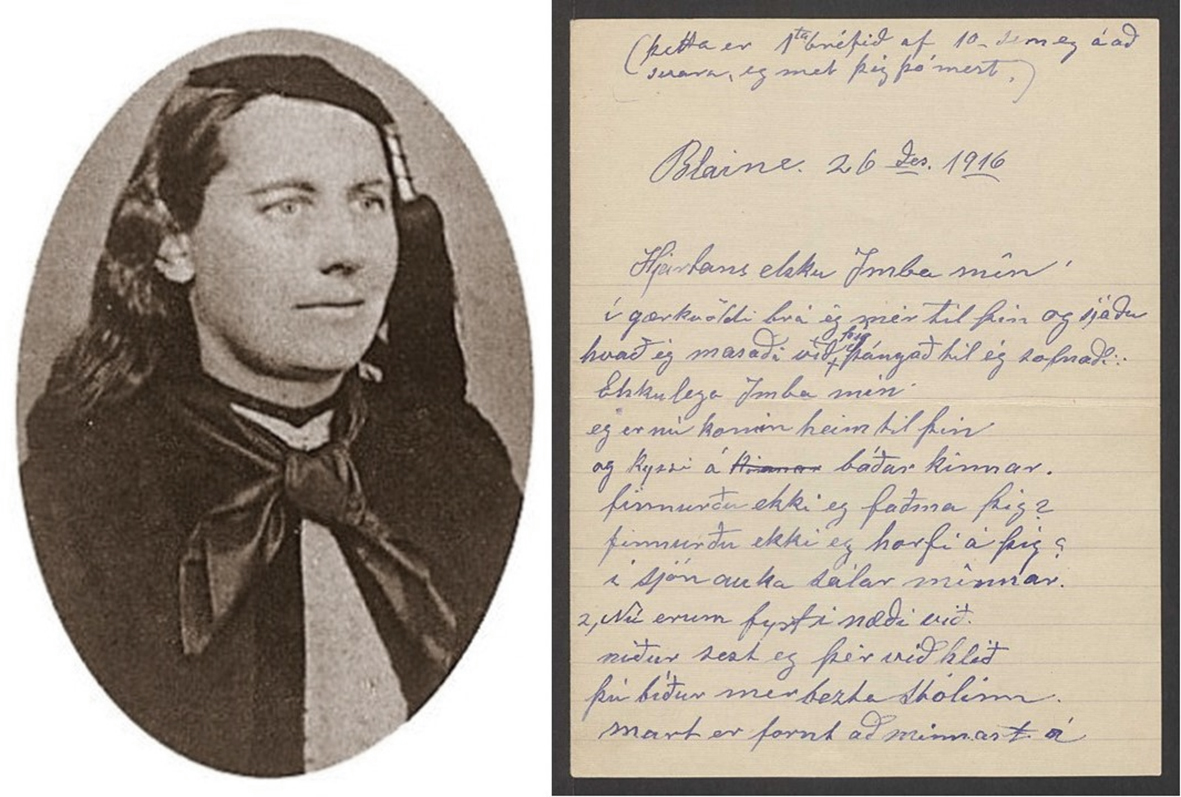 (þetta er 1ta bréfið af 10 sem eg á að
svara, eg met þig þó mest.)
Blaine. 26 Des. 1916
Hjartans elsku Imba mín
í gærkvöldi brá ég mér til þín og sjáðu
hvað ég masaði við þig þángað til ég sofnaði:
Elskulega Imba mín
eg er nú komin heim til þín
og kyssi á kinnar báðar kinnar.
finnurðu ekki eg faðma þig?
finnurðu ekki eg horfi á þig?
í sjón auka sálar minnar.
2, Nú erum fyrst í næði við.
niður sest eg þér við hlið
þú bíður mer bezta stólinn.
mart er fornt að minnast á